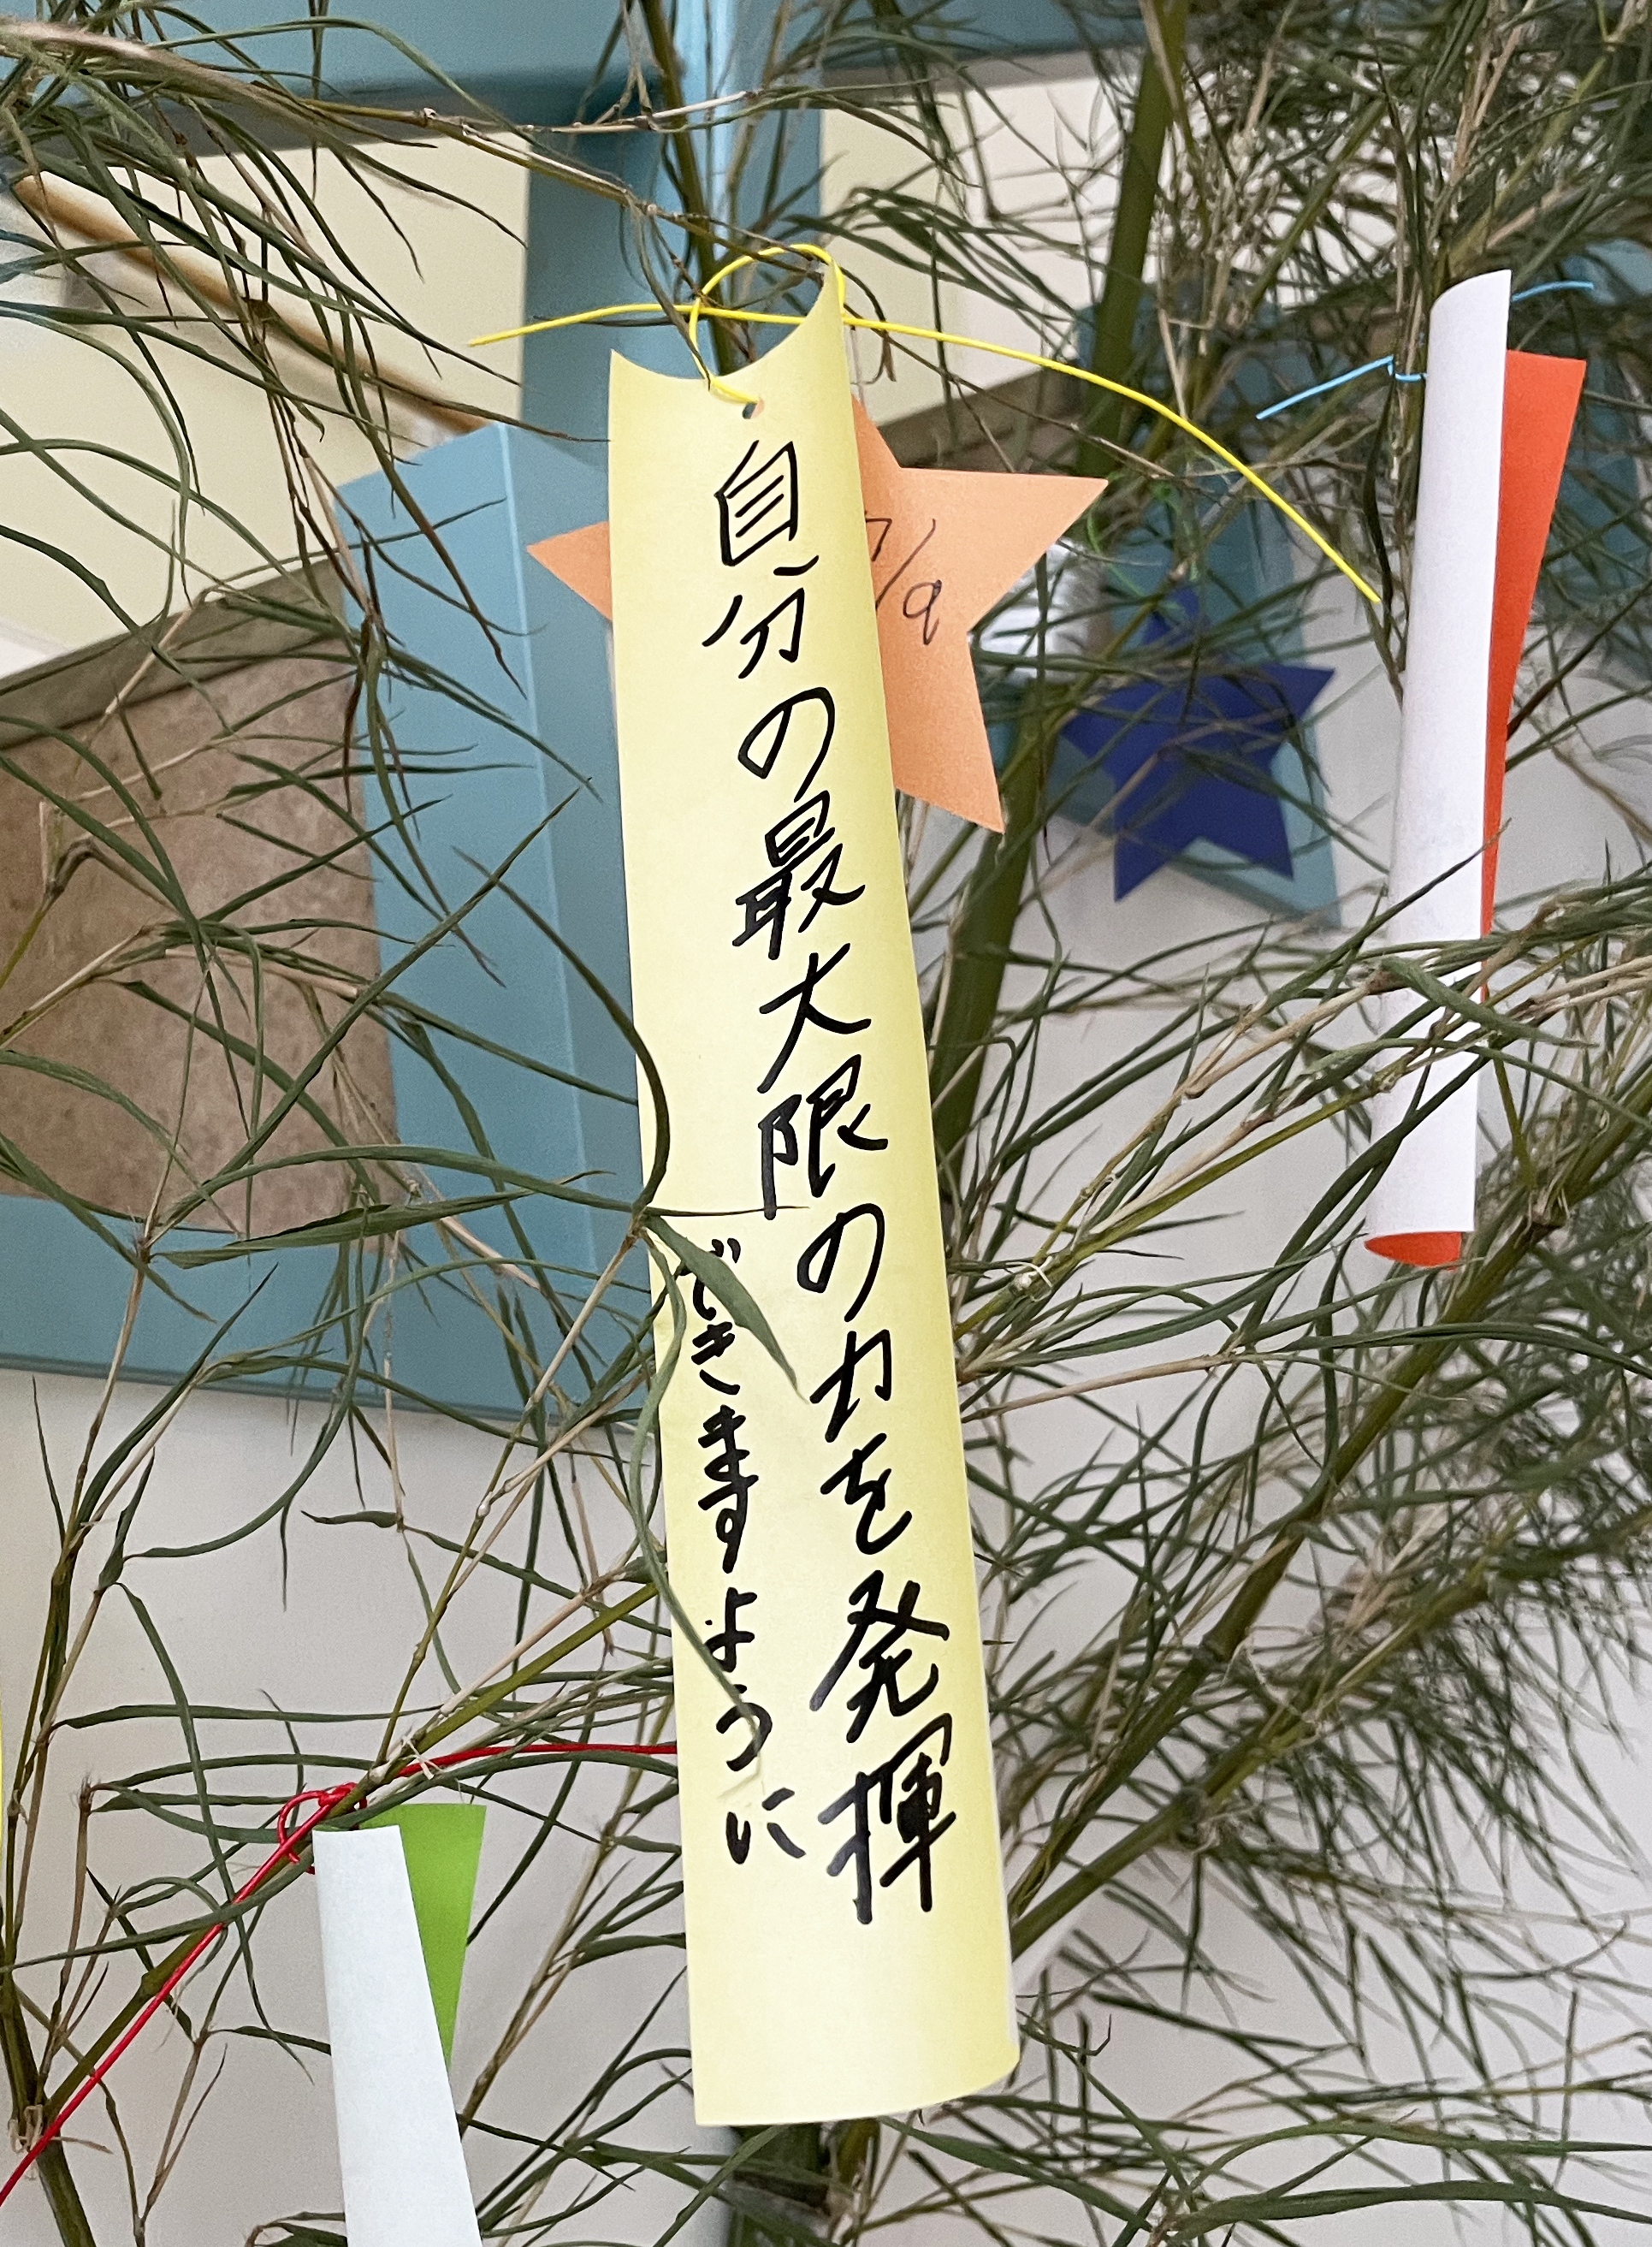 自分の最大限の力を発揮
できますように
7/9